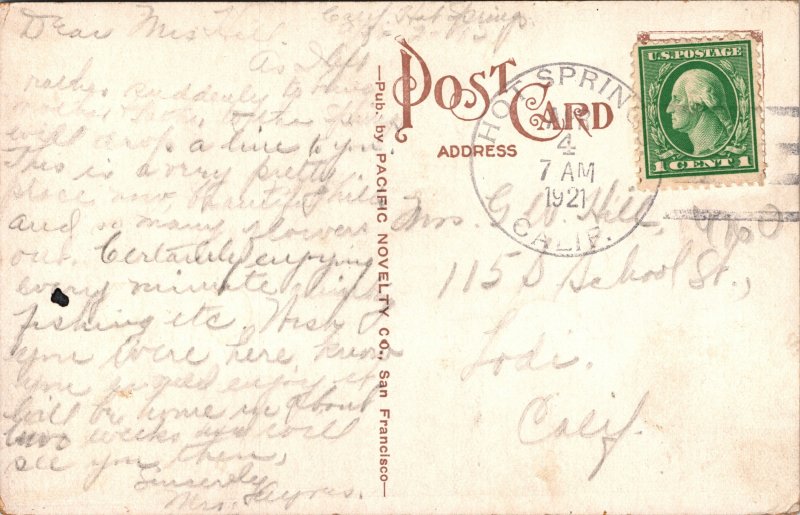 Calif. Hot Springs
Dear Mrs Hill
As I left
rather suddenly to
will drop a line to you.
This is a very pretty
place now, beautiful hills
and so many flowers
out. Certainly enjoying
every minute
fishing etc. Wish
you were here know
you would enjoy it
Will be home in about
two weeks and will
see you then,
Sincerely
Mrs.
Pub. by PACIFIC NOVELTY CO., San Francisco
POST CARD
ADDRESS
HOT SPRINGS
4
7 AM
1921
CALIF.
U.S. POSTAGE
1 CENT 1
Mrs. G. W. Hill,
115 S School St.,
Lodi.
Calif.